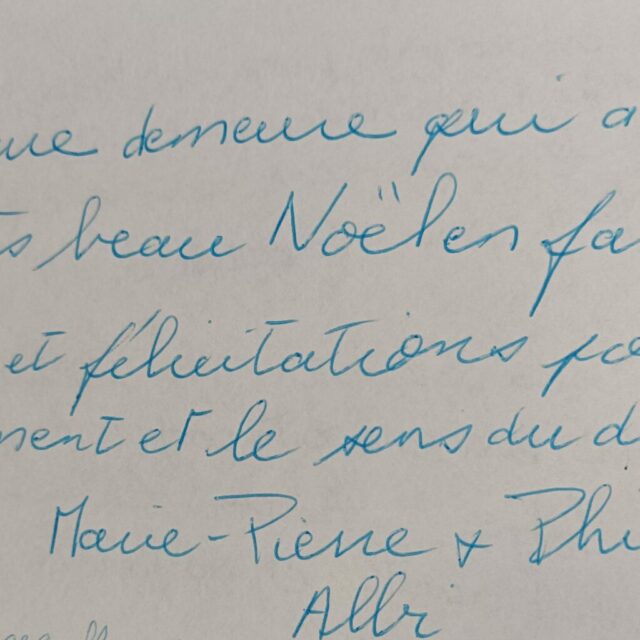 demeure qui a
beau Noël en fa
et félicitations po
ment et le sens du d
Marie-Pierre + Phi
Albi